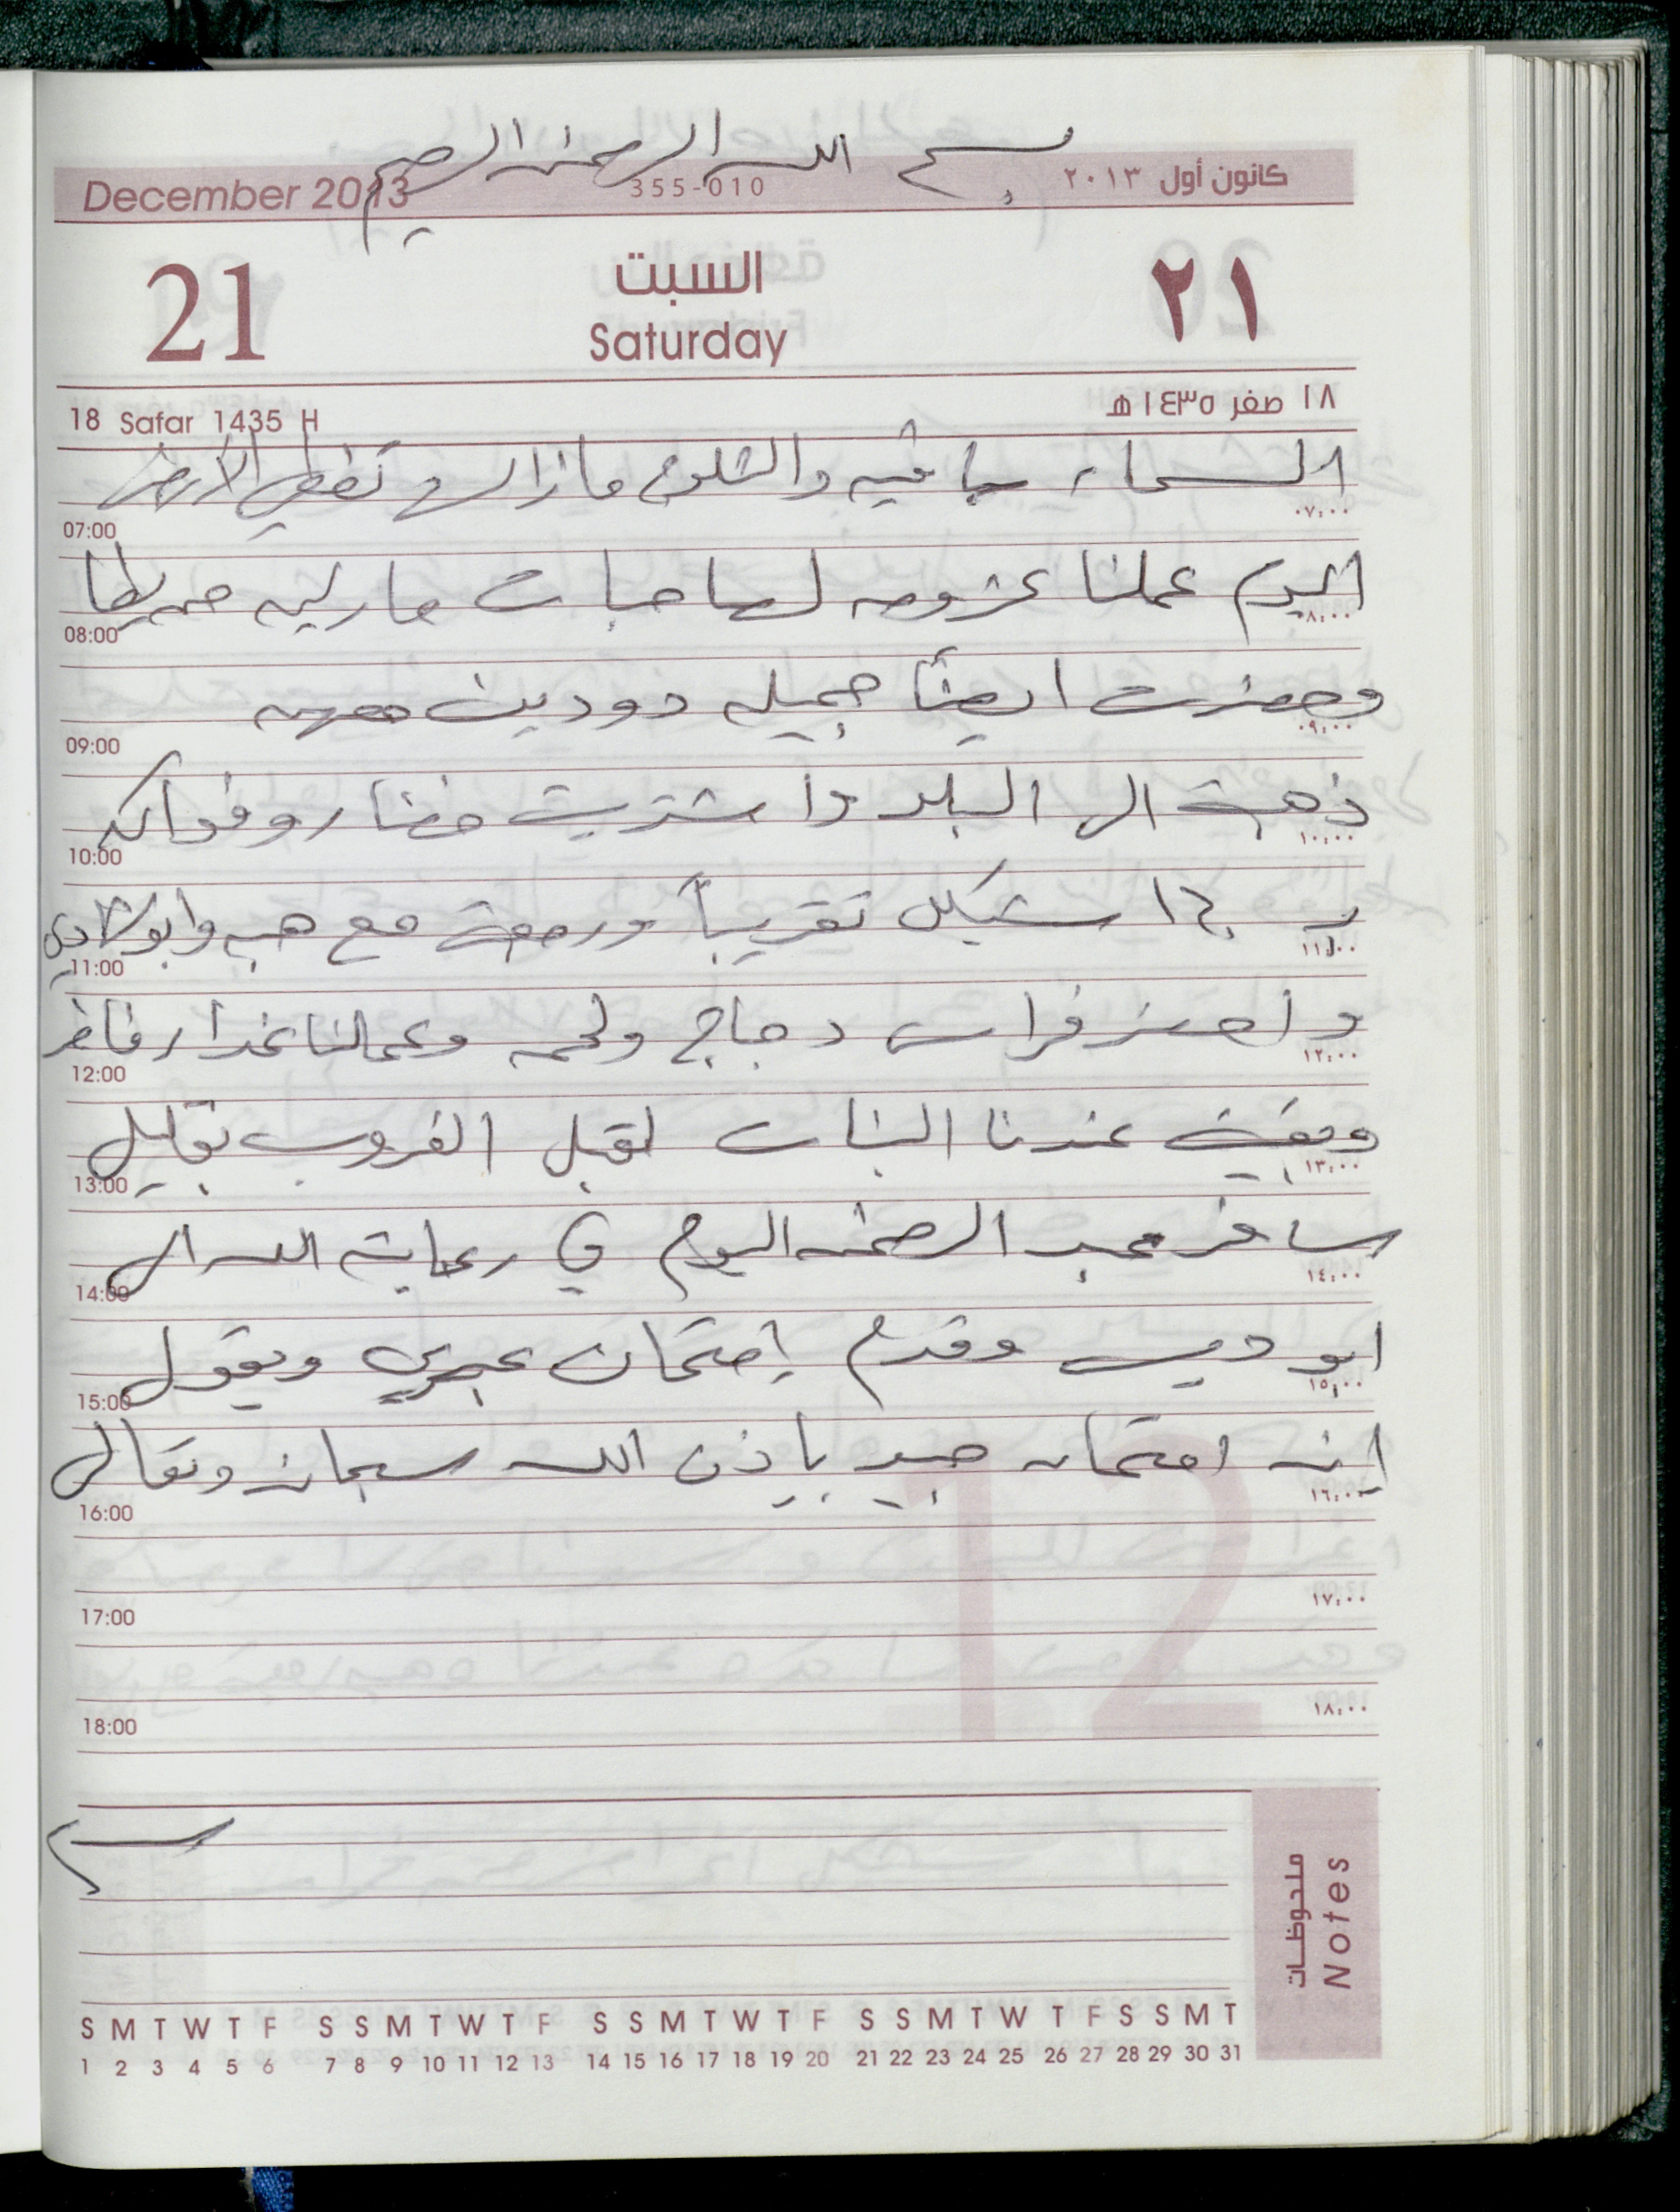 بسم الله الرحمن الرحيم
December 2013 355-010 كانون أول ٢٠١٣
21 السبت ٢١
Saturday
18 Safar 1435 H ١٨ صفر ١٤٣٥ هـ
السماء صافيه والثلوج مازالت تغطي الأرض
07:00 ٠٧:٠٠
اليوم عملنا عزومه لصاحبات مارلين
08:00 ٠٨:٠٠
وحضرت ايضاً جميله دودين معهن
09:00 ٠٩:٠٠
ذهبت الى البلد واشتريت خضار وفواكه
10:00 ١٠:٠٠
ب ١٢٠ شيكل تقريباً ورجعت مع هبه وابو شادي
11:00 ١١:٠٠
واحضر فراس دجاج ولحمه وعملنا غدا فاخر
12:00 ١٢:٠٠
وبقيت عندنا البنات لقبل الغروب بقليل
13:00 ١٣:٠٠
سافر عبد الرحمن اليوم في رعاية الله الى
14:00 ١٤:٠٠
ابو ديس وقدم إمتحان عبري ويقول
15:00 ١٥:٠٠
إنه امتحان جيد بإذن الله سبحانه وتعالى
16:00 ١٦:٠٠
12
17:00 ١٧:٠٠
18:00 ١٨:٠٠
ملحوظات
Notes
S M T W T F S S M T W T F S S M T W T F S S M T W T F S S M T
1 2 3 4 5 6 7 8 9 10 11 12 13 14 15 16 17 18 19 20 21 22 23 24 25 26 27 28 29 30 31